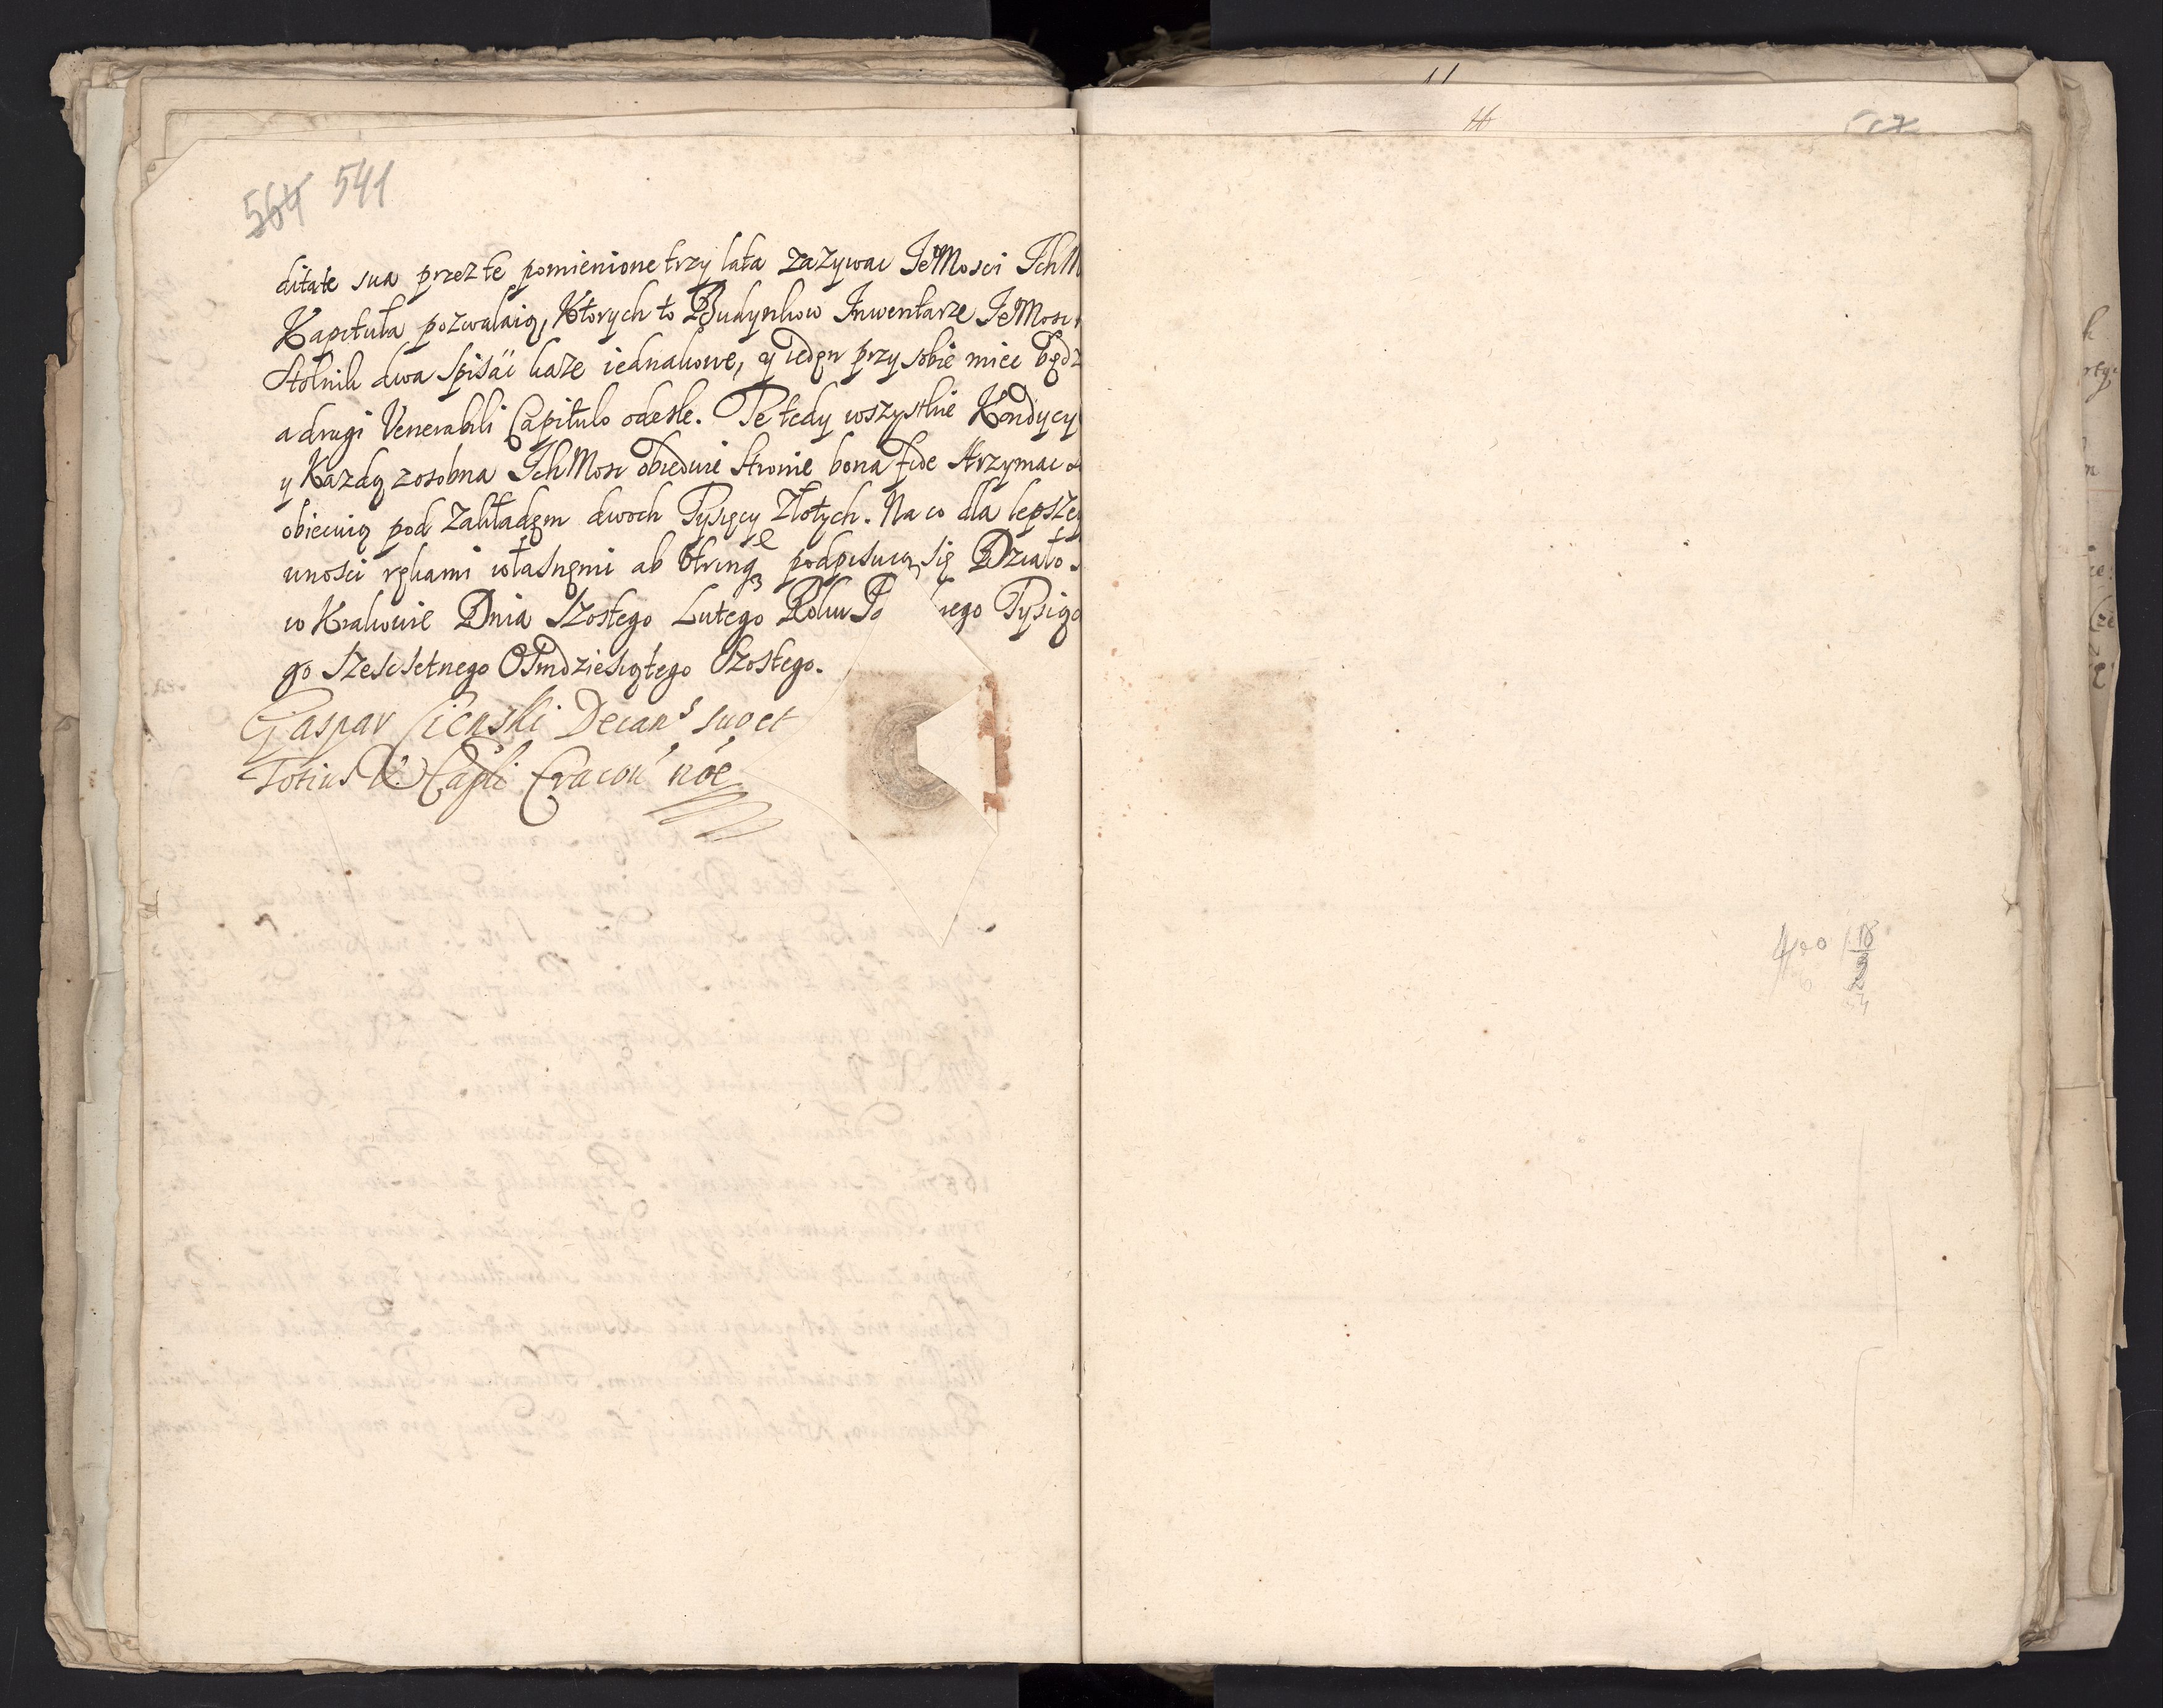 564 541
ditate sua przez te pomienione trzy lata zazywac JeMosci Ich M
Kapituła pozwalaią, Ktorych to Budynkow Inwentarze JeMosc
Stolnik dwa spisać kaze iednakowe, y ieden przy sobie miec będz
a drugi Venerabili Capitulo odesle. Te tedy wszystkie Kondycy
y Kazdą zosobna IchMosc obiedwie stronie bona fide strzymac
obiecuią pod Zakładem dwoch Tysięcy Złotych. Na co dla lepszey
wnosci rękami własnemi ab utrinq podpisuią się Działo
w Krakowie Dnia Szostego Lutego Roku Pa skiego Tysiąc
go Szescsetnego Osmdziesiątego Szostego.
Gaspar Cienski Decans suo et
Totius V. Capli Cracou noe
400 18